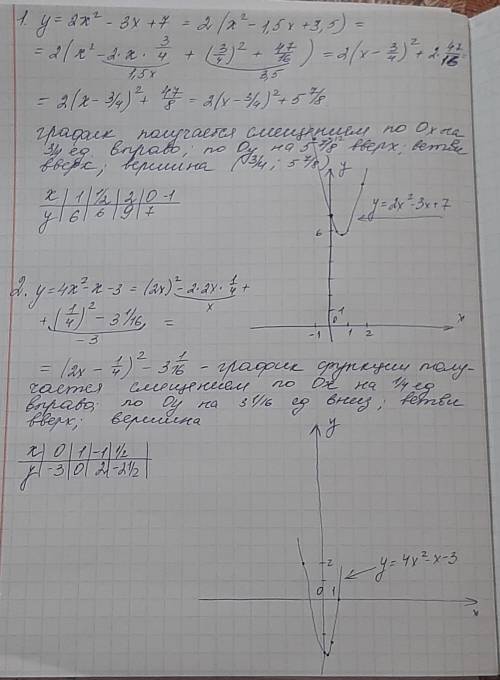 1. y = 2x² - 3x + 7 = 2(x² - 1,5x + 3,5) =
= 2(x² - 2·x·3/4 + (3/4)² + 47/16) = 2(x - 3/4)² + 2·47/16 =
1,5x 3,5
= 2(x - 3/4)² + 47/8 = 2(x - 3/4)² + 5 7/8
график получается смещением по Ox на
3/4 ед вправо; по Oy на 5 7/8 вверх; ветви
вверх; вершина (3/4; 5 7/8)
x | 1 | 1/2 | 2 | 0 -1
y | 6 | 6 | 9 | 7
y
y = 2x² - 3x + 7
6
1
0
-1 1 2
x
2. y = 4x² - x - 3 = (2x)² - 2·2x·1/4 +
x
+ (1/4)² - 3 1/16 =
-3
= (2x - 1/4)² - 3 1/16 - график функции полу-
чается смещением по Ox на 1/4 ед
вправо; по Oy на 3 1/16 ед вниз; ветви
вверх; вершина
x | 0 | 1 | -1 | 1/2 |
y | -3 | 0 | 2 | -2 1/2 |
y
y = 4x² - x - 3
2
0 1
x